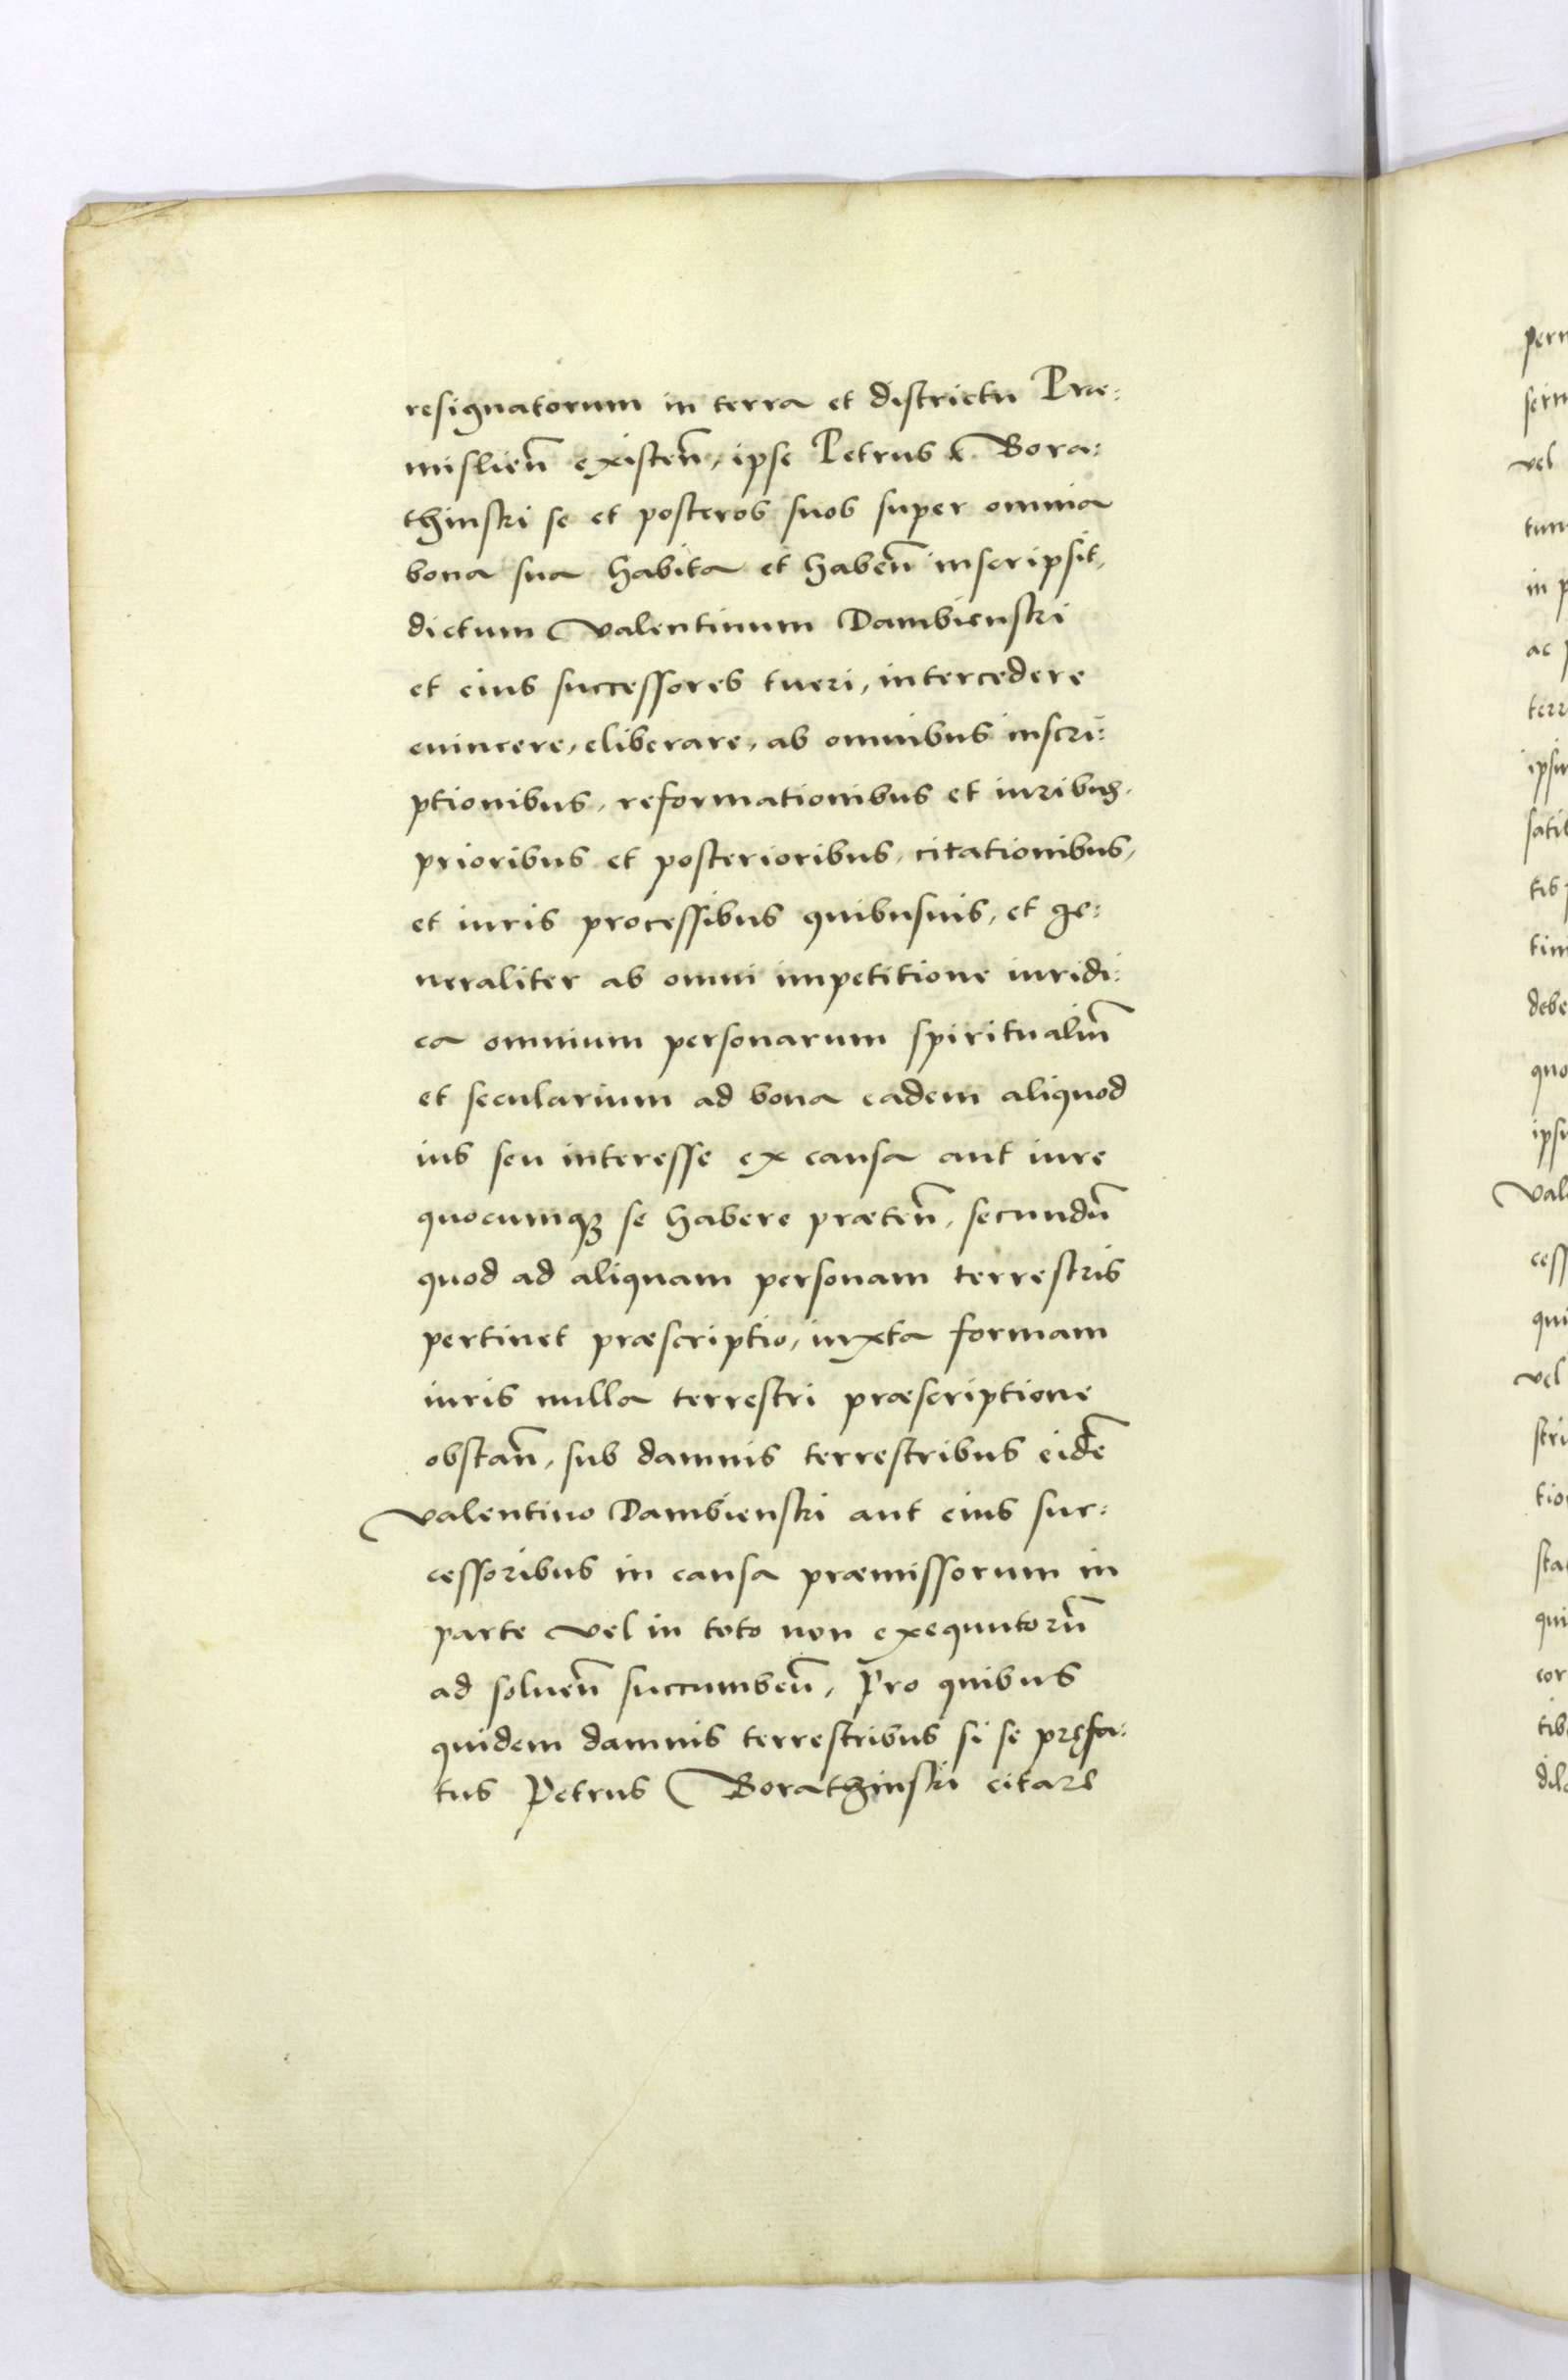 resignatorum in terra et districtu Præ:
mislien̄ existen̄, ipse Petrus Bora:
thinski se et posteros suos super omnia
bona sua habita et haben̄ inscripsit,
dictum Valentinum Dambienski
et eius successores tueri, intercedere
euincere, eliberare, ab omnibus inscri:
ptionibus, reformationibus et iuribus,
prioribus et posterioribus, citationibus,
et iuris processibus quibusuis, et ge:
neraliter ab omni impetitione iuridi:
ca omnium personarum spiritualiu̅
et secularium ad bona eadem aliquod
ius seu interesse ex causa aut iure
quocumqꝫ se habere præten̄, secundu̅
quod ad aliquam personam terrestris
pertinet præscriptio, iuxta formam
iuris nulla terrestri præscriptione
obstan̄, sub damnis terrestribus eide̅
Valentino Dambienski aut eius suc:
cessoribus in causa præmissorum in
parte vel in toto non exequutoru̅
ad soluen̄ succumben̄, Pro quibus
quidem damnis terrestribus si se pręfa:
tus Petrus Borathinski citare
pern
vel
tum
in p
ac
terr
ipsu
tis
tim
debe
quo
ipsu
Val
cess
qui
vel
scri
tio
sta
qui
cor
tib
dila